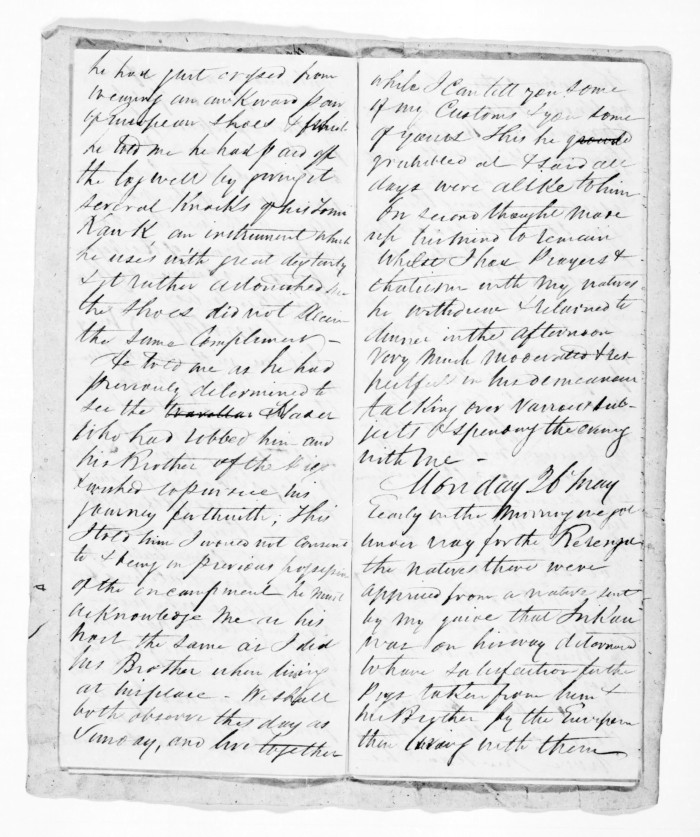 he had just crossed from
wearing an awkward pair
of European Shoes &
he told me he had paid off
the leg well by giving it
several Knocks of his Tom
Hawk an instrument which
he uses with great dexterity
& yet rather astonished
the Shoes did not
the same Complement –
He told me as he had
previously determined to
see the travellar
who had robbed him and
his Brother of the Pigs
& wished to pursue his
journey forthwith; This
I told him I would not Consent
to & being in previous possession
of the encampment he must
acknowledge Me as his
host the same as I did
his Brother when living
at his place – We shall
both observe this day as
Sunday, and live together
while I can tell you some
of my Customs & you some
of yours This he
grumbled at & said all
days were alike to him
On second thought made
up his mind to remain
Whilst I had Prayers &
with my natives
he withdrew & returned to
dinner in the afternoon
Very Much moderated & res-
pectful in his demeanour
talking over Various sub-
jects & spending the evening
with me –
Monday 26 May
Early in the Morning we got
under way for the
the natives there were
apprised from a native sent
by my guide that
was on his way determined
to have satisfaction for the
Pigs taken from him &
his Brother by the European
then living with them